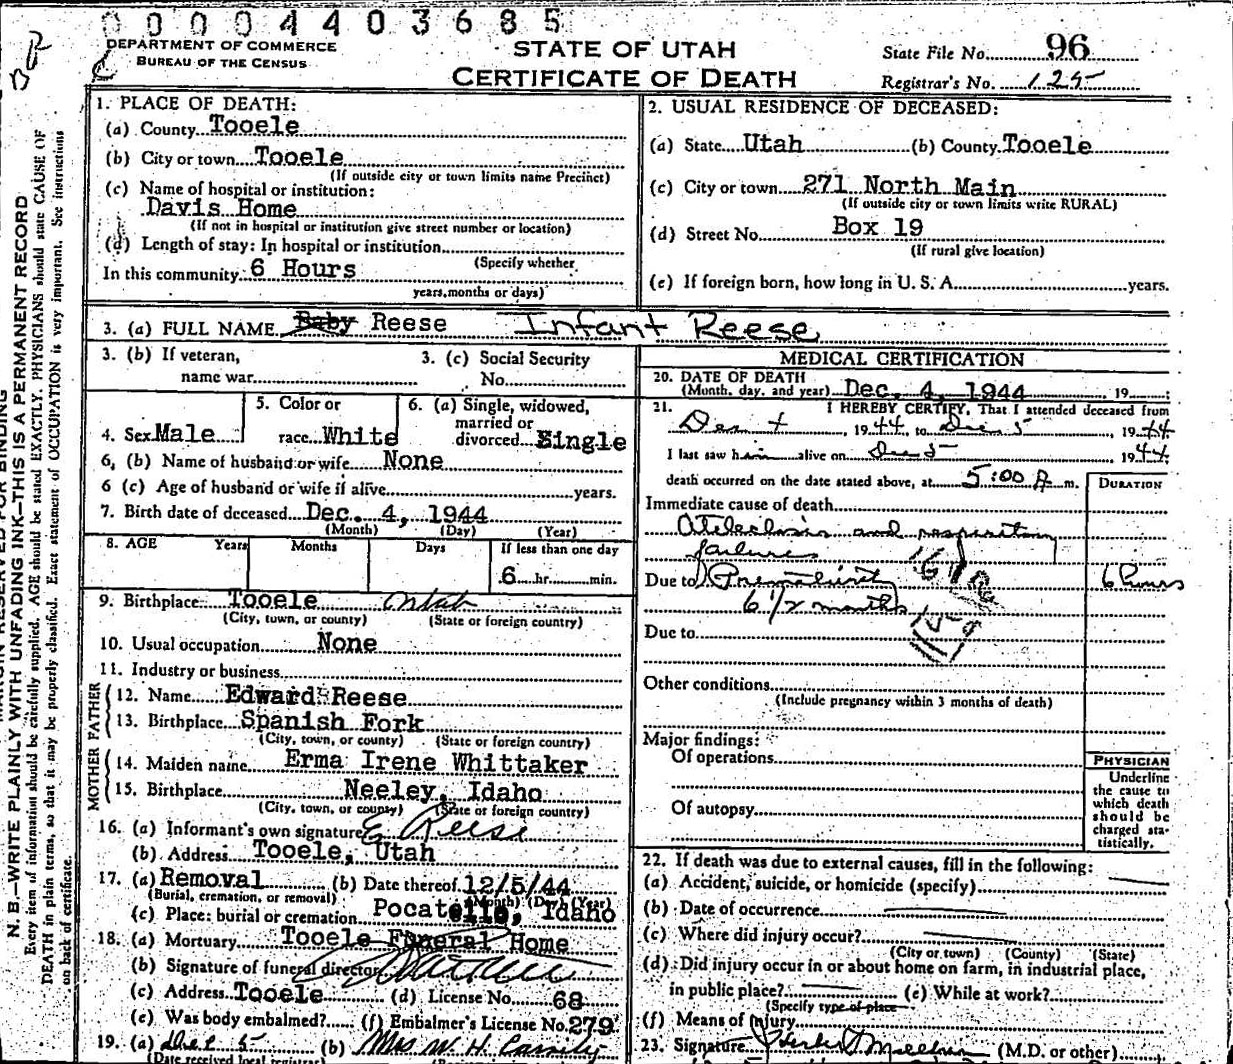 00004403685
DEPARTMENT OF COMMERCE
BUREAU OF THE CENSUS
STATE OF UTAH
CERTIFICATE OF DEATH
State File No. 96
Registrar's No. 125
N. B.—WRITE PLAINLY WITH UNFADING INK—THIS IS A PERMANENT RECORD
Every item of information should be carefully supplied. AGE should be stated EXACTLY. PHYSICIANS should state CAUSE OF
DEATH in plain terms, so that it may be properly classified. Exact statement of OCCUPATION is very important. See instructions
on back of certificate.
1. PLACE OF DEATH:
(a) County Tooele
(b) City or town Tooele
(If outside city or town limits name Precinct)
(c) Name of hospital or institution:
Davis Home
(If not in hospital or institution give street number or location)
(d) Length of stay: In hospital or institution
(Specify whether
In this community 6 Hours
years, months or days)
2. USUAL RESIDENCE OF DECEASED:
(a) State Utah (b) County Tooele
(c) City or town 271 North Main
(If outside city or town limits write RURAL)
(d) Street No. Box 19
(If rural give location)
(e) If foreign born, how long in U. S. A. years.
3. (a) FULL NAME Baby Reese Infant Reese
3. (b) If veteran, name war
3. (c) Social Security No.
4. Sex Male
5. Color or race White
6. (a) Single, widowed, married or divorced Single
6. (b) Name of husband or wife None
6 (c) Age of husband or wife if alive years.
7. Birth date of deceased Dec. 4, 1944
(Month) (Day) (Year)
8. AGE Years Months Days If less than one day
6 hr. min.
9. Birthplace Tooele Utah
(City, town, or county) (State or foreign country)
10. Usual occupation None
11. Industry or business
FATHER
12. Name Edward Reese
13. Birthplace Spanish Fork
(City, town, or county) (State or foreign country)
MOTHER
14. Maiden name Erma Irene Whittaker
15. Birthplace Neeley, Idaho
(City, town, or county) (State or foreign country)
16. (a) Informant's own signature E Reese
(b) Address Tooele, Utah
17. (a) Removal (b) Date thereof 12/5/44
(Burial, cremation, or removal) (Month) (Day) (Year)
(c) Place: burial or cremation Pocatello, Idaho
18. (a) Mortuary Tooele Funeral Home
(b) Signature of funeral director
(c) Address Tooele (d) License No. 68
(e) Was body embalmed? (f) Embalmer's License No. 279
19. (a) Dec 5 (b) Mrs W. H. Cassity
(Date received local registrar)
MEDICAL CERTIFICATION
20. DATE OF DEATH
(Month, day, and year) Dec. 4, 1944 19
21. I HEREBY CERTIFY, That I attended deceased from
Dec 4, 1944, to Dec 5, 1944
I last saw him alive on Dec 5 1944;
death occurred on the date stated above, at 5:00 A m.
DURATION
Immediate cause of death
Atelectasis and respiratory
failure
Due to Prematurity 6 hours
6 1/2 months
Due to
Other conditions
(Include pregnancy within 3 months of death)
Major findings:
Of operations
Of autopsy
PHYSICIAN
Underline
the cause to
which death
should be
charged sta-
tistically.
22. If death was due to external causes, fill in the following:
(a) Accident, suicide, or homicide (specify)
(b) Date of occurrence
(c) Where did injury occur?
(City or town) (County) (State)
(d) Did injury occur in or about home on farm, in industrial place,
in public place? (e) While at work?
(Specify type of place)
(f) Means of Injury
23. Signature (M.D. or other)